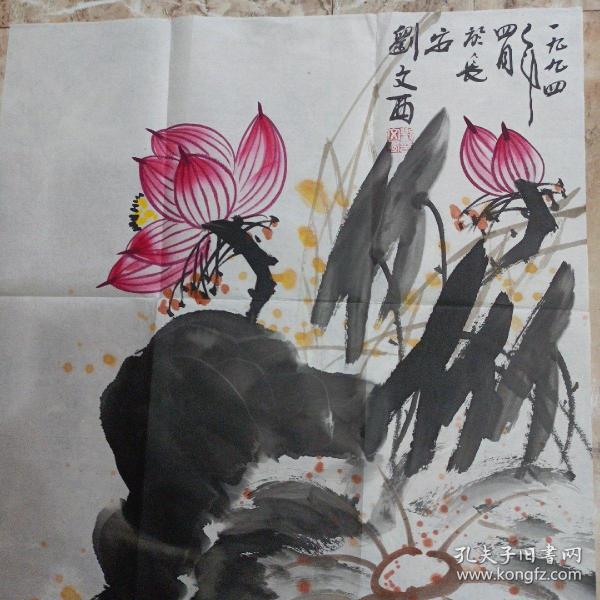 一九九四
年
四月
於長
安
劉文西
孔夫子旧書网
www.kongfz.com